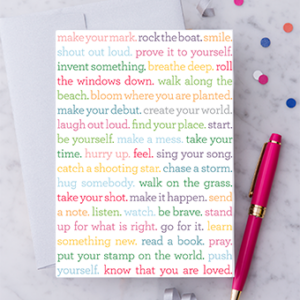 make your mark. rock the boat. smile.
shout out loud. prove it to yourself.
invent something. breathe deep. roll
the windows down. walk along the
beach. bloom where you are planted.
make your debut. create your world.
laugh out loud. find your place. start.
be yourself. make a mess. take your
time. hurry up. feel. sing your song.
catch a shooting star. chase a storm.
hug somebody. walk on the grass.
take your shot. make it happen. send
a note. listen. watch. be brave. stand
up for what is right. go for it. learn
something new. read a book. pray.
put your stamp on the world. push
yourself. know that you are loved.